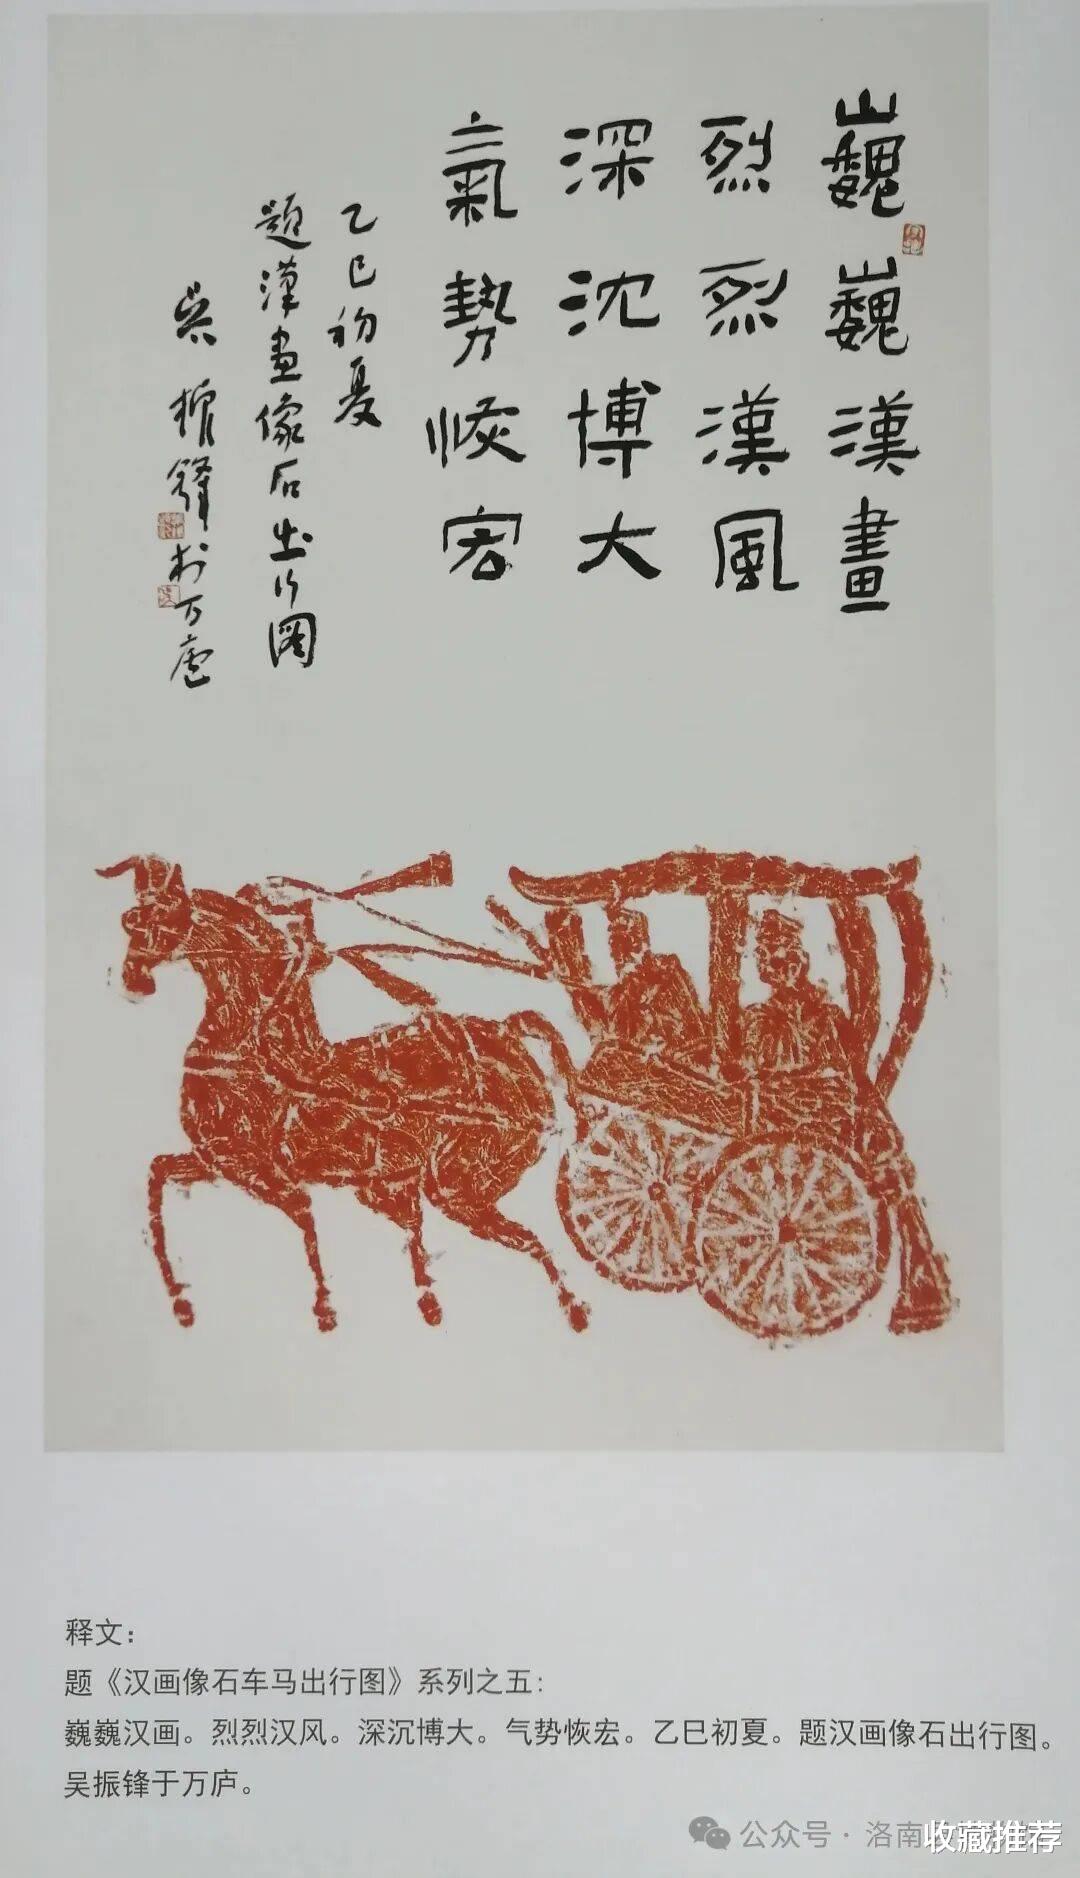 巍巍漢畫
烈烈漢風
深沈博大
氣勢恢宏
乙巳初夏
題漢畫像石出行圖
吴振鋒於万廬
释文：
题《汉画像石车马出行图》系列之五：
巍巍汉画。烈烈汉风。深沉博大。气势恢宏。乙巳初夏。题汉画像石出行图。
吴振锋于万庐。
公众号·洛南
收藏推荐